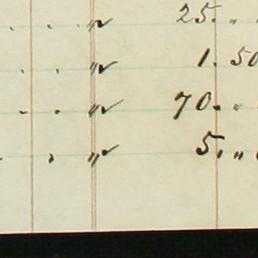 . . " 25. "
. . " 1. 50
. . " 70. "
. . " 5. "